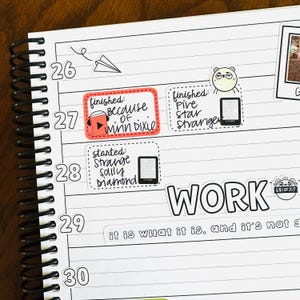 26
27
finished
Because
of
Winn Dixie
finished
Five
Star
Stranger
28
started
Strange
Sally
Diamond
WORK
29
it is what it is. and it's not g
30